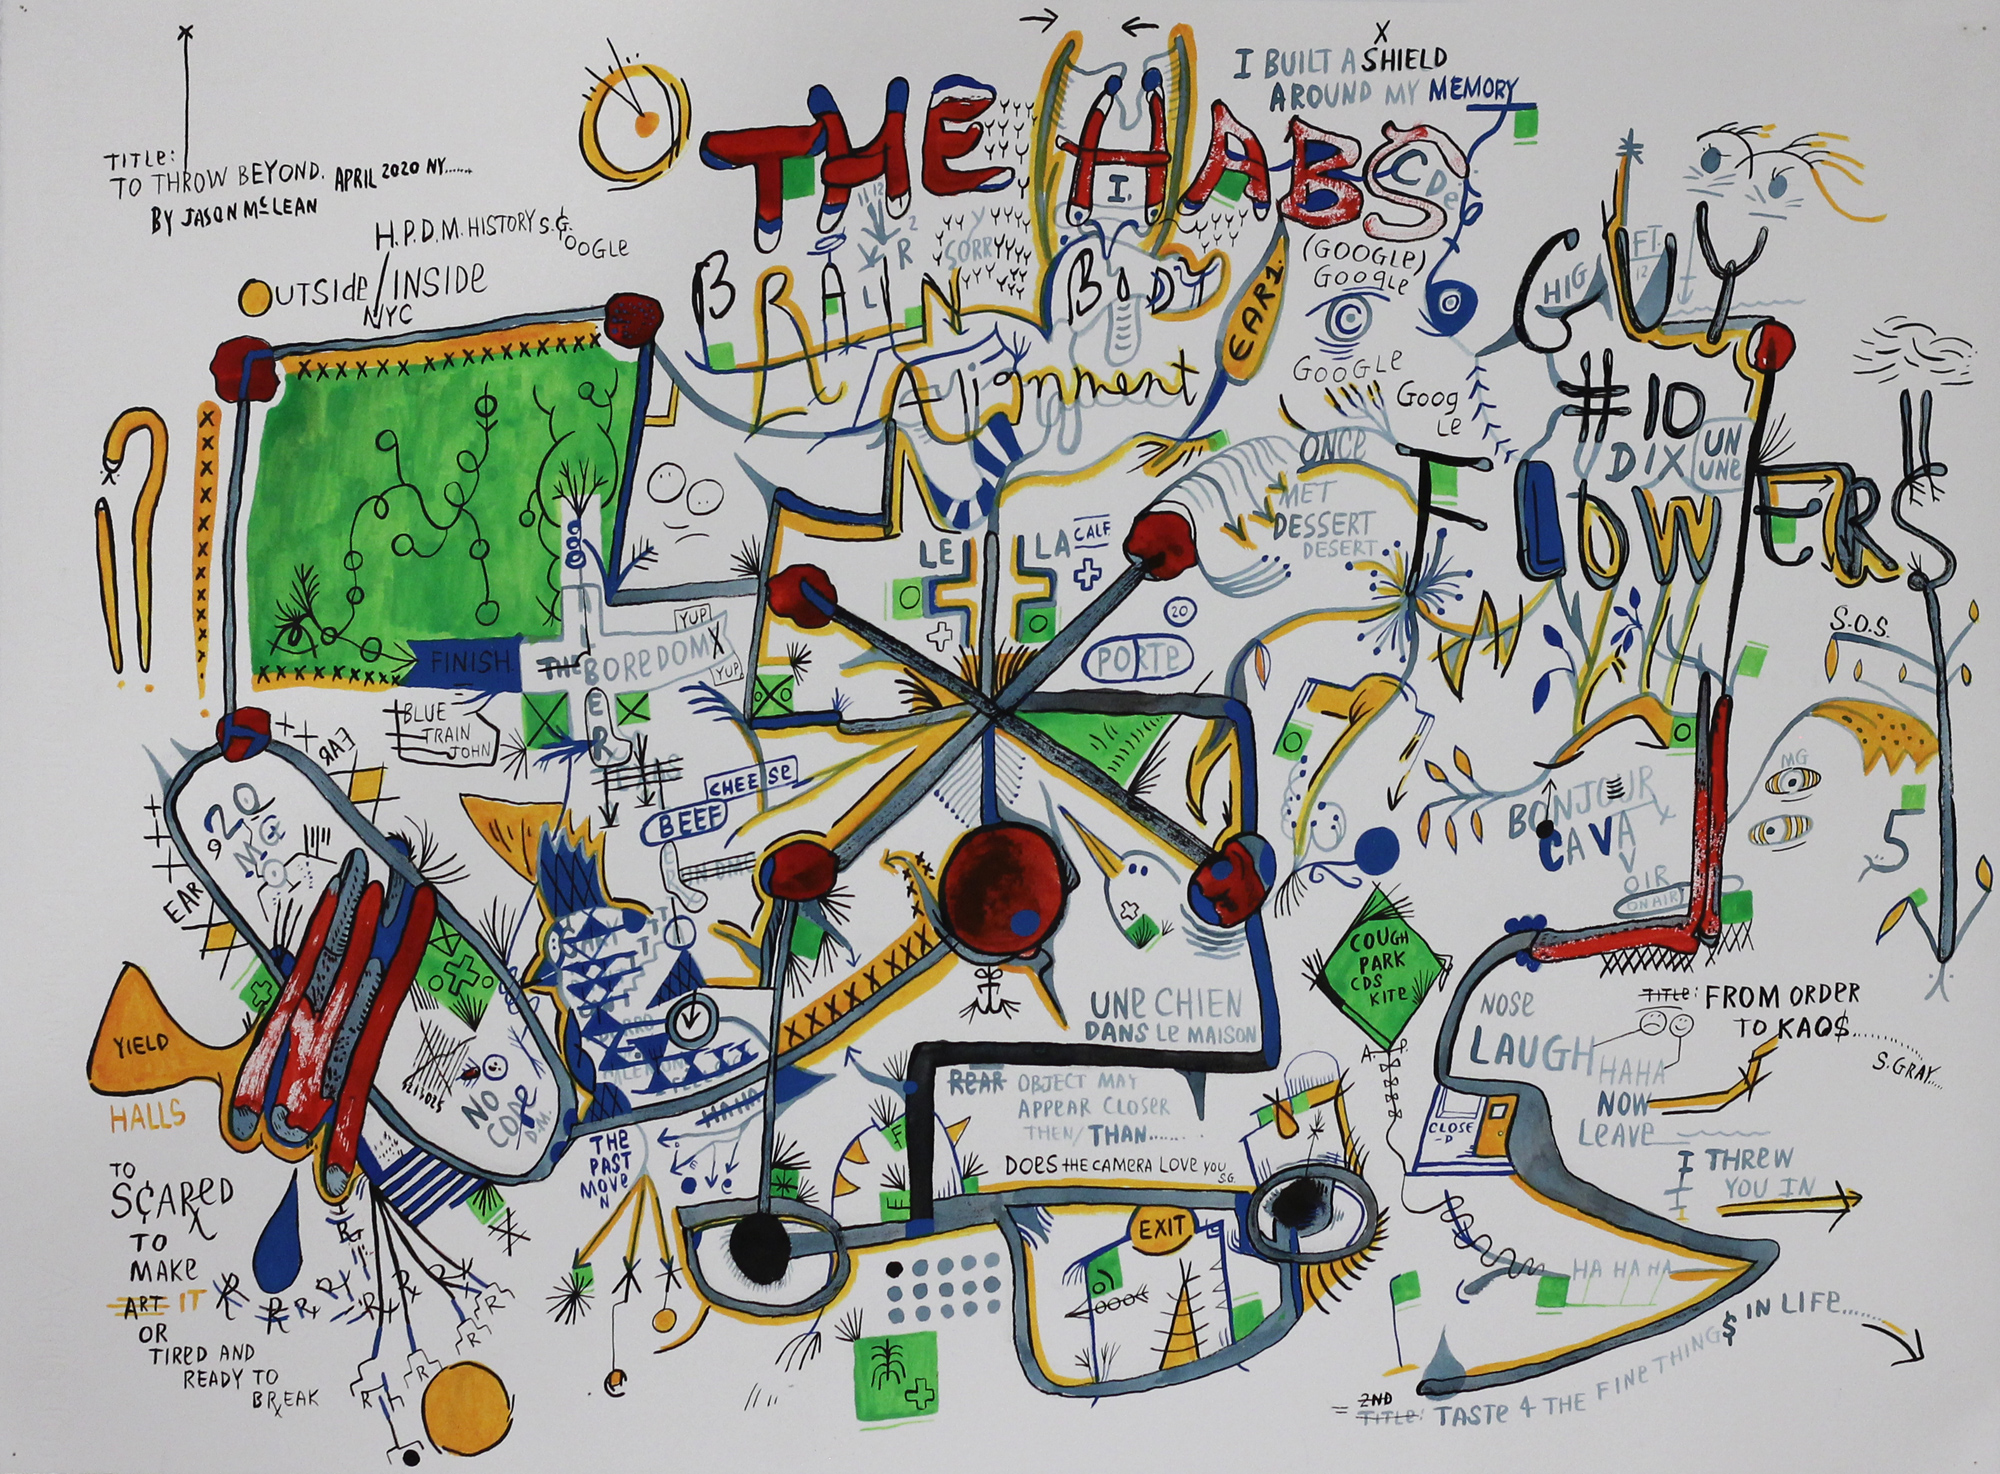 TITLE:
TO THROW BEYOND. APRIL 2020 NY......
BY JASON McLEAN
H.P.D.M. HISTORY S.G.
OOGLE
OUTSIDE/INSIDE
NYC
THE HABS
I BUILT A SHIELD
AROUND MY MEMORY
BRAIN BODY
Alignment
SORRY
EAR 1.
(GOOGLE)
GOOGLE
C
GOOGLE
GOOG
LE
GUY
HIG
FT.
12
#10
DIX
UN
UNE
FLOWERS
ONCE
MET
DESSERT
DESERT
LE
LA
CALF
20
PORTE
YUP
FINISH.
THE BOREDOM
YUP
BLUE
TRAIN
JOHN
EAR
CHEESE
BEEF
RUN DMC
S.O.S.
MG
5
BONJOUR
CAVA
OIR
ON AIR
20
9
MG
EAR
YIELD
HALLS
NO
CODE
D.M.
UNE CHIEN
DANS LE MAISON
COUGH
PARK
CDS
KITE
A. P.
NOSE
LAUGH
TITLE: FROM ORDER
TO KAO$.........
S. GRAY....
HAHA
NOW
LEAVE
REAR OBJECT MAY
APPEAR CLOSER
THEN/THAN........
DOES THE CAMERA LOVE YOU
S.G.
HAHA
THE
PAST
MOVE
N
CLOSE
-D
I THREW
YOU IN
EXIT
TO
SCARED
TO
MAKE
ART IT
OR
TIRED AND
READY TO
BREAK
HA HA HA
= 2ND
TITLE: TASTE 4 THE FINE THING$ IN LIFE......